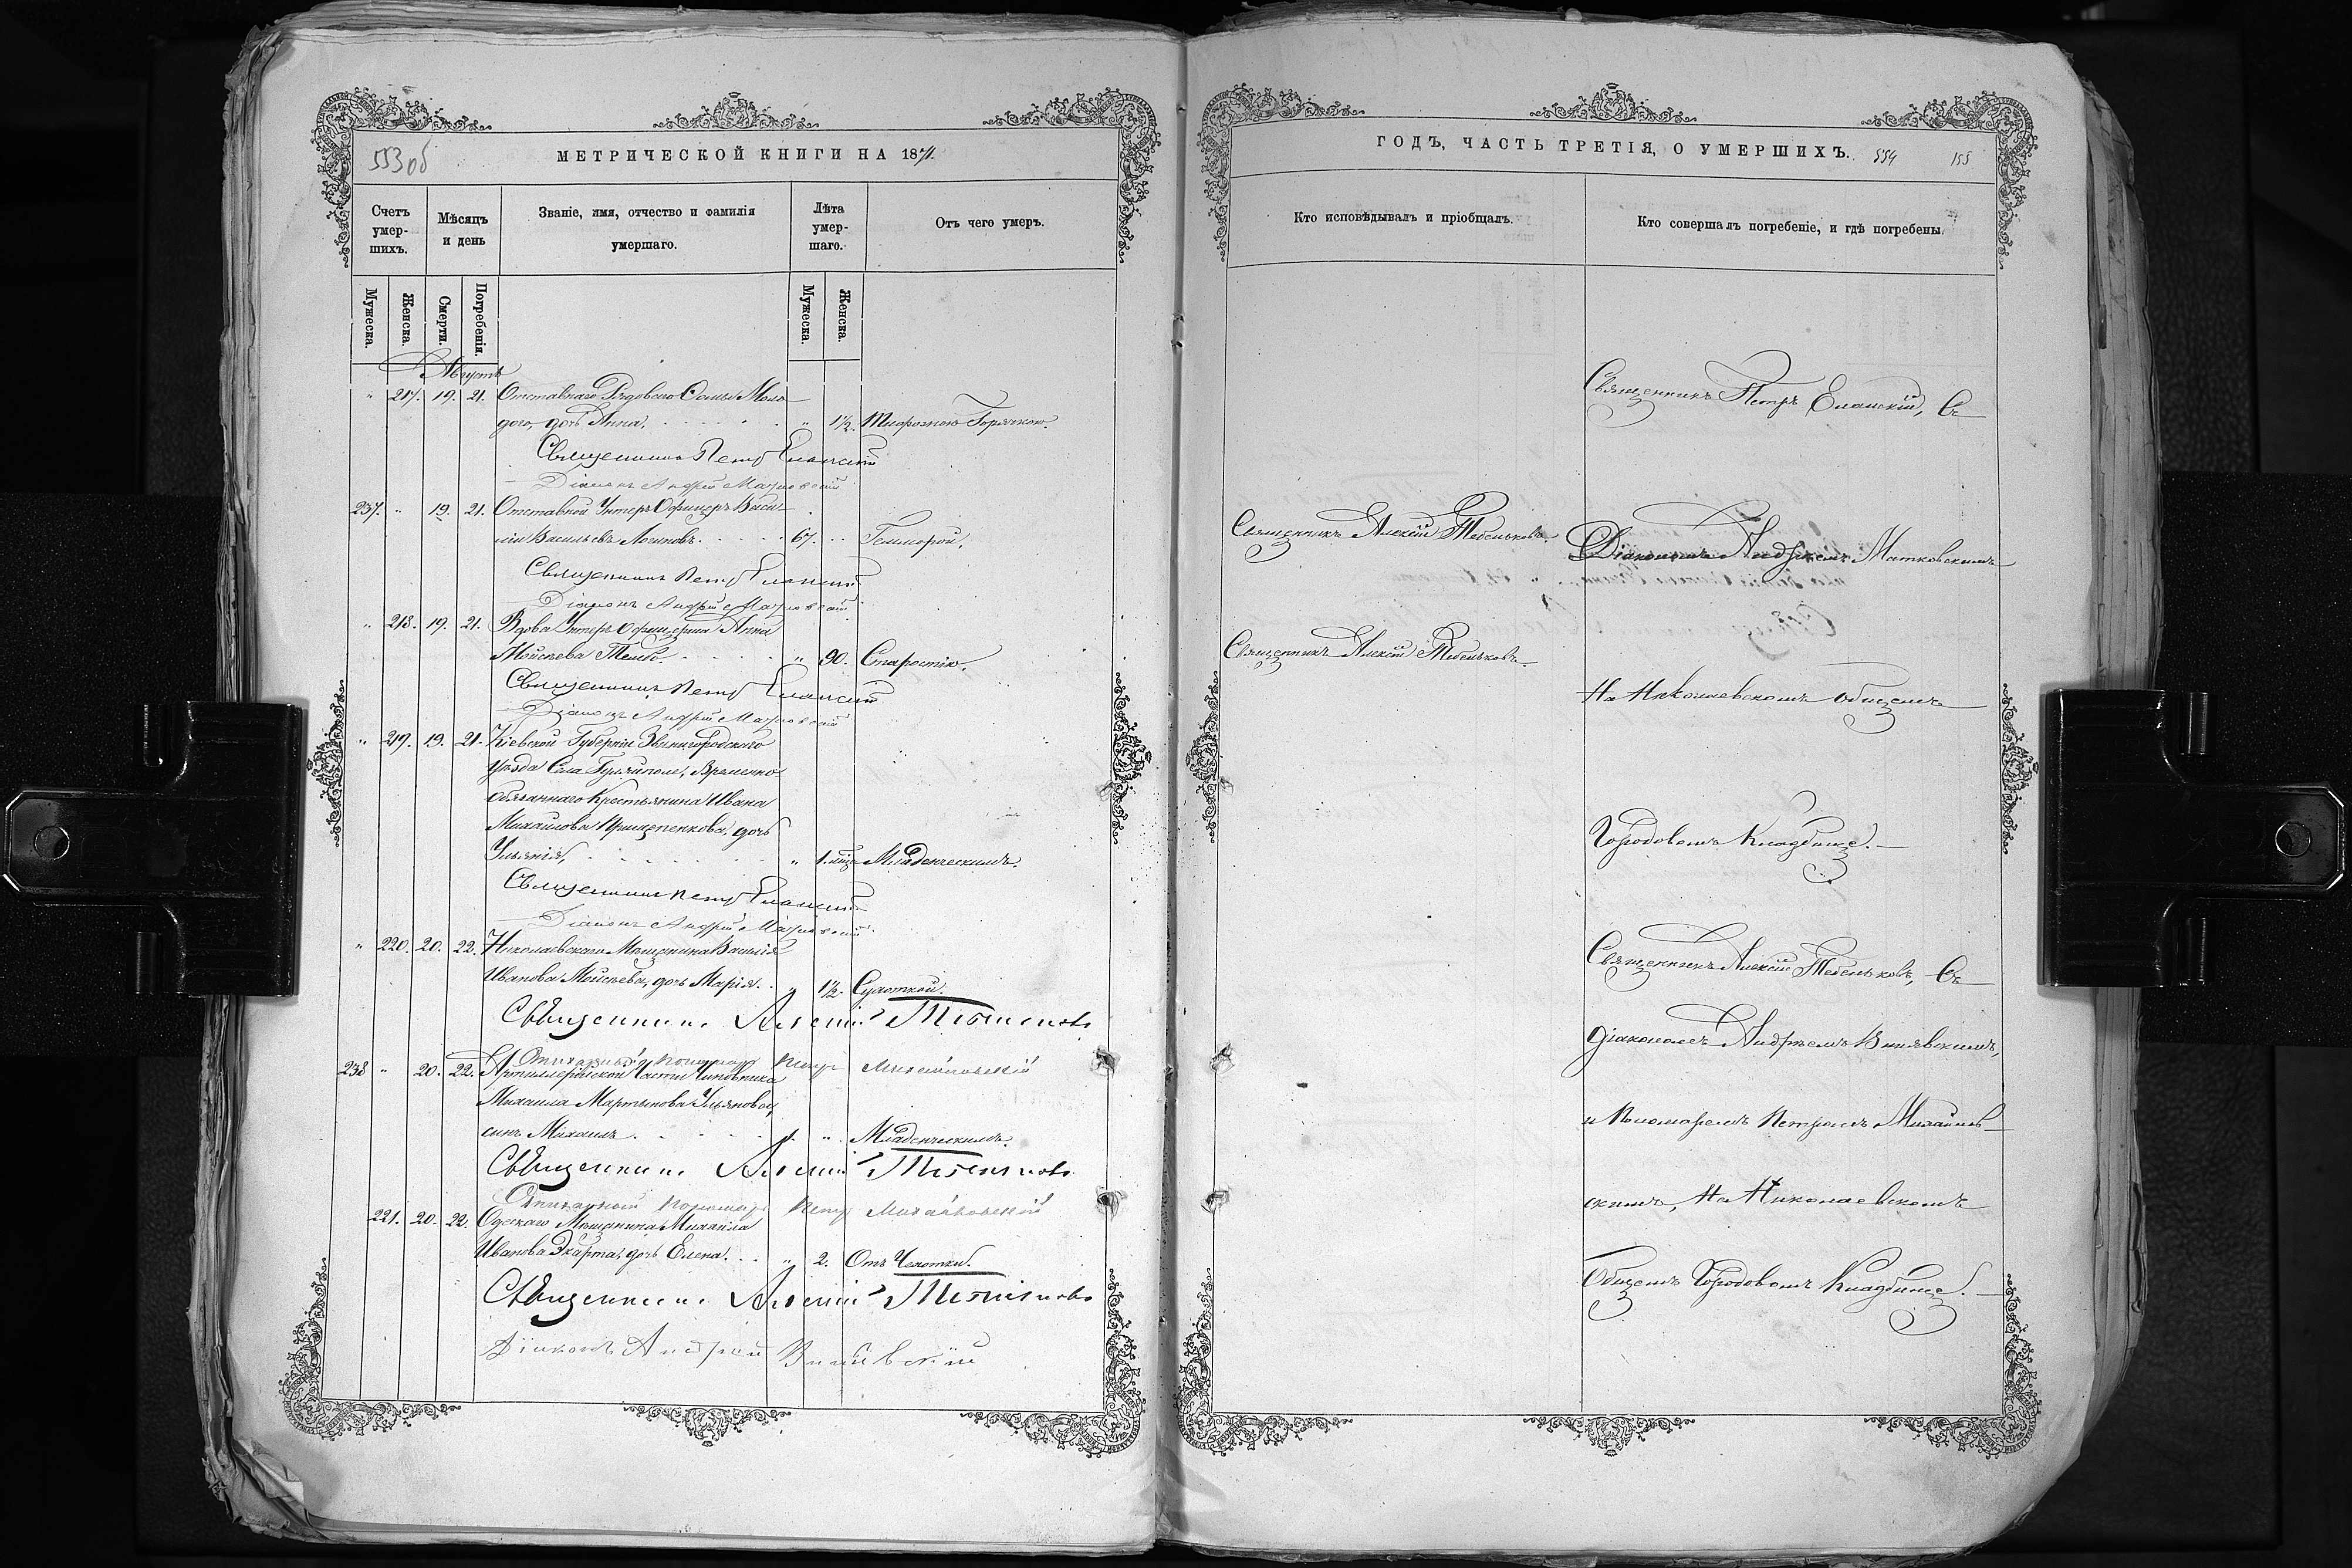 553об
МЕТРИЧЕСКОЙ КНИГИ НА 1871.
Счетъ умер-шихъ.
Мѣсяцъ и день
Званіе, имя, отчество и фамилія умершаго.
Лѣта умер-шаго.
Отъ чего умеръ.
Мужеска.
Женска.
Смерти.
Погребенія.
Мужеска.
Женска.
Августъ
" 217. 19. 21. Отставнаго Рядоваго Моло-
даго, дочь Анна. " 1½. Горячкою.
Священникъ Петръ Еланскій
Діаконъ Андрей Матковскій
237. " 19. 21. Отставной Унтеръ Офицеръ Васи-
лій Васильевъ Логиновъ. 67. " Гемморой.
Священникъ Петръ Еланскій
Діаконъ Андрей Матковскій
" 218. 19. 21. Вдова Унтеръ Офицерша Анна
Мойсѣева " 90. Старостію.
Священникъ Петръ Еланскій
Діаконъ Андрей Матковскій
" 219. 19. 21. Кіевской Губерніи Звенигородскаго
Уѣзда Села Временно-
обязаннаго Крестьянина Ивана
Михайлова дочь
Ульянія, " 1. мѣц. Младенческимъ.
Священникъ Петръ Еланскій
Діаконъ Андрей Матковскій
" 220. 20. 22. Николаевскаго Мѣщанина Василія
Иванова Мойсѣева, дочь Марія. " 1½. Сухоткой.
Священникъ Алексій Тебеньковъ
Пономарь Петръ Михайловскій
238 " 20. 22. Артиллерійской Части Чиновника
Михаила Мартынова Ульянова,
сынъ Михаилъ. 1. " Младенческимъ.
Священникъ Алексій Тебеньковъ
Пономарь Петръ Михайловскій
221. 20. 22. Одесскаго Мѣщанина Михаила
Иванова Экарта, дочь Елена. " 2. Отъ Чахотки.
Священникъ Алексій Тебеньковъ
Діаконъ Андрей
ГОДЪ, ЧАСТЬ ТРЕТІЯ, О УМЕРШИХЪ. 554 155
Кто исповѣдывалъ и пріобщалъ.
Кто совершалъ погребеніе, и гдѣ погребены.
Священникъ Петръ Еланскій, Съ
Священникъ Алексій Тебеньковъ.
Діакономъ Андреемъ Матковскимъ
Священникъ Алексій Тебеньковъ.
На Николаевскомъ общемъ
Городовомъ Кладбищѣ.
Священникъ Алексій Тебеньковъ, Съ
діакономъ Андреемъ
и Пономаремъ Петромъ Михайлов-
скимъ, На Николаевскомъ
Общемъ Городовомъ Кладбищѣ.